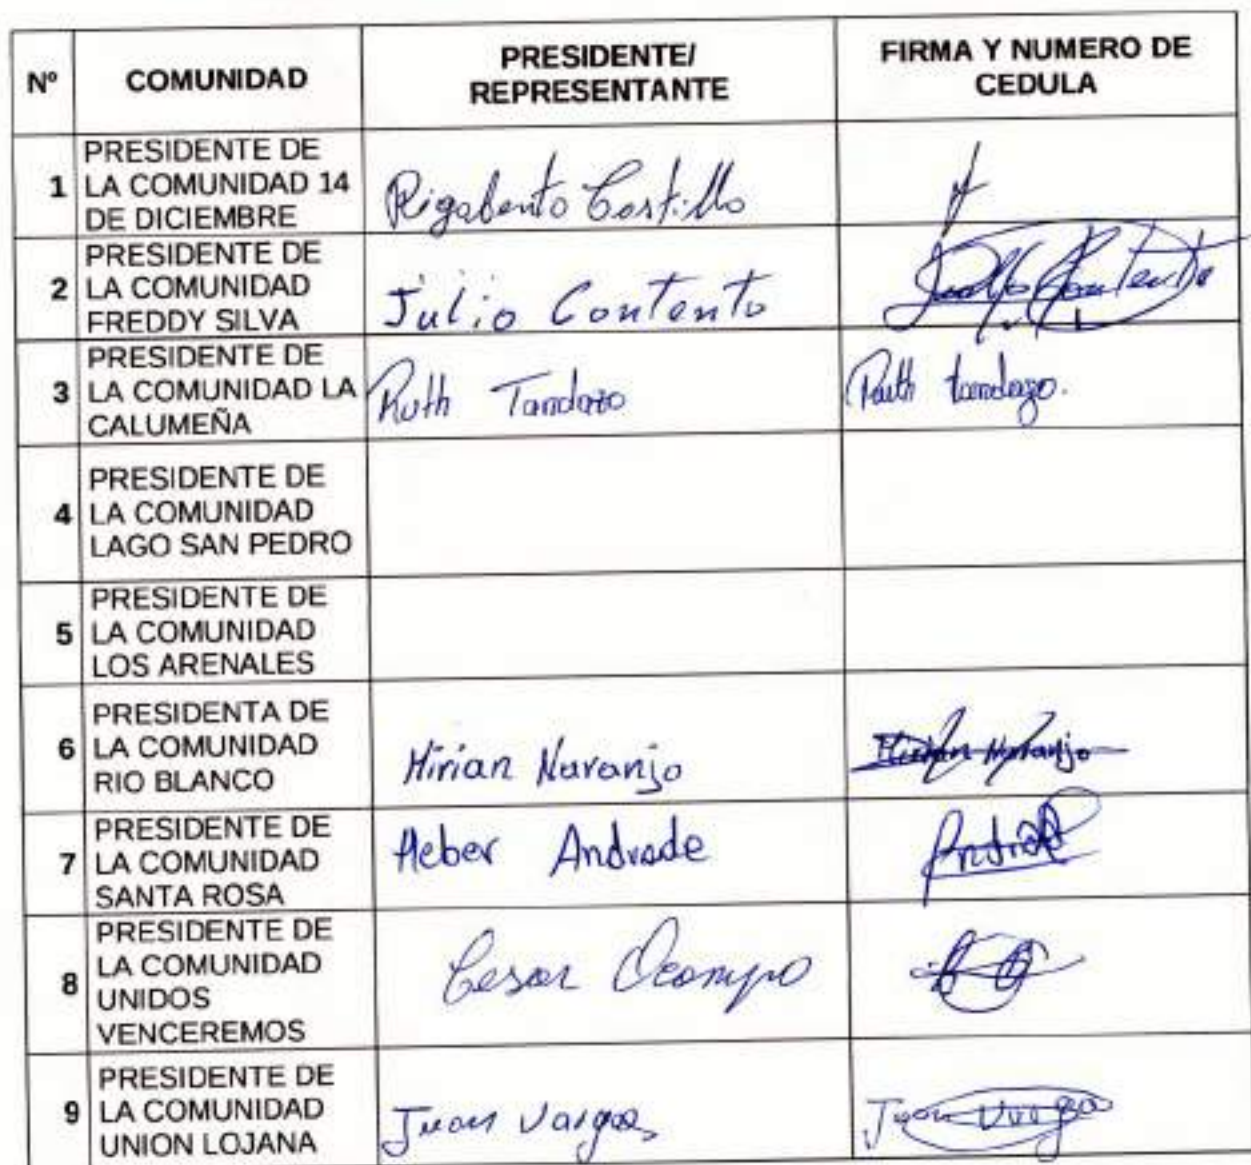 Nº COMUNIDAD PRESIDENTE/ REPRESENTANTE FIRMA Y NUMERO DE CEDULA
1 PRESIDENTE DE
LA COMUNIDAD 14
DE DICIEMBRE
Rigabento Costillo
2 PRESIDENTE DE
LA COMUNIDAD
FREDDY SILVA
Julio Contento
3 PRESIDENTE DE
LA COMUNIDAD LA
CALUMEÑA
Ruth Tandazo
Ruth tandazo.
4 PRESIDENTE DE
LA COMUNIDAD
LAGO SAN PEDRO
5 PRESIDENTE DE
LA COMUNIDAD
LOS ARENALES
6 PRESIDENTA DE
LA COMUNIDAD
RIO BLANCO
Mirian Naranjo
Mirian Naranjo
7 PRESIDENTE DE
LA COMUNIDAD
SANTA ROSA
Heber Andrade
8 PRESIDENTE DE
LA COMUNIDAD
UNIDOS
VENCEREMOS
Cesar Ocampo
9 PRESIDENTE DE
LA COMUNIDAD
UNION LOJANA
Juan Vargas
Juan Vargas